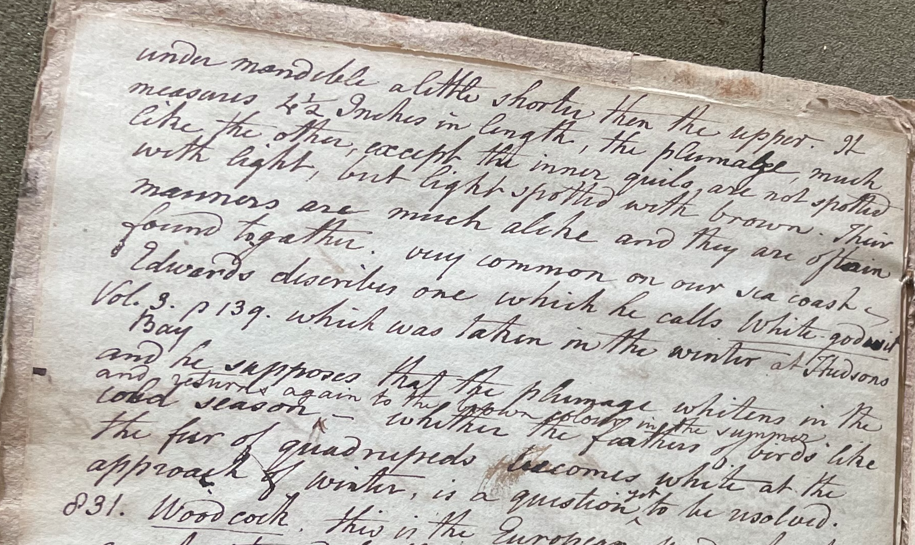 under mandible a little shorter then the upper. It
measures 4½ Inches in length, the plumage, much
like the other, except the inner quils, are not spotted
with light, but light spotted with brown. Their
manners are much alike and they are oftain
found togather. very common on our sea coast
Edwards describes one which he calls White godwit
Vol. 3. p 139. which was taken in the winter at Hudsons
Bay
and he supposes that the plumage whitens in the
and returns again to the brown colour in the summer
cold season - whether the feathers of birds like
the fur of quadrupeds becomes white at the
approach of winter, is a question yet to be resolved.
831. Woodcock. this is the European